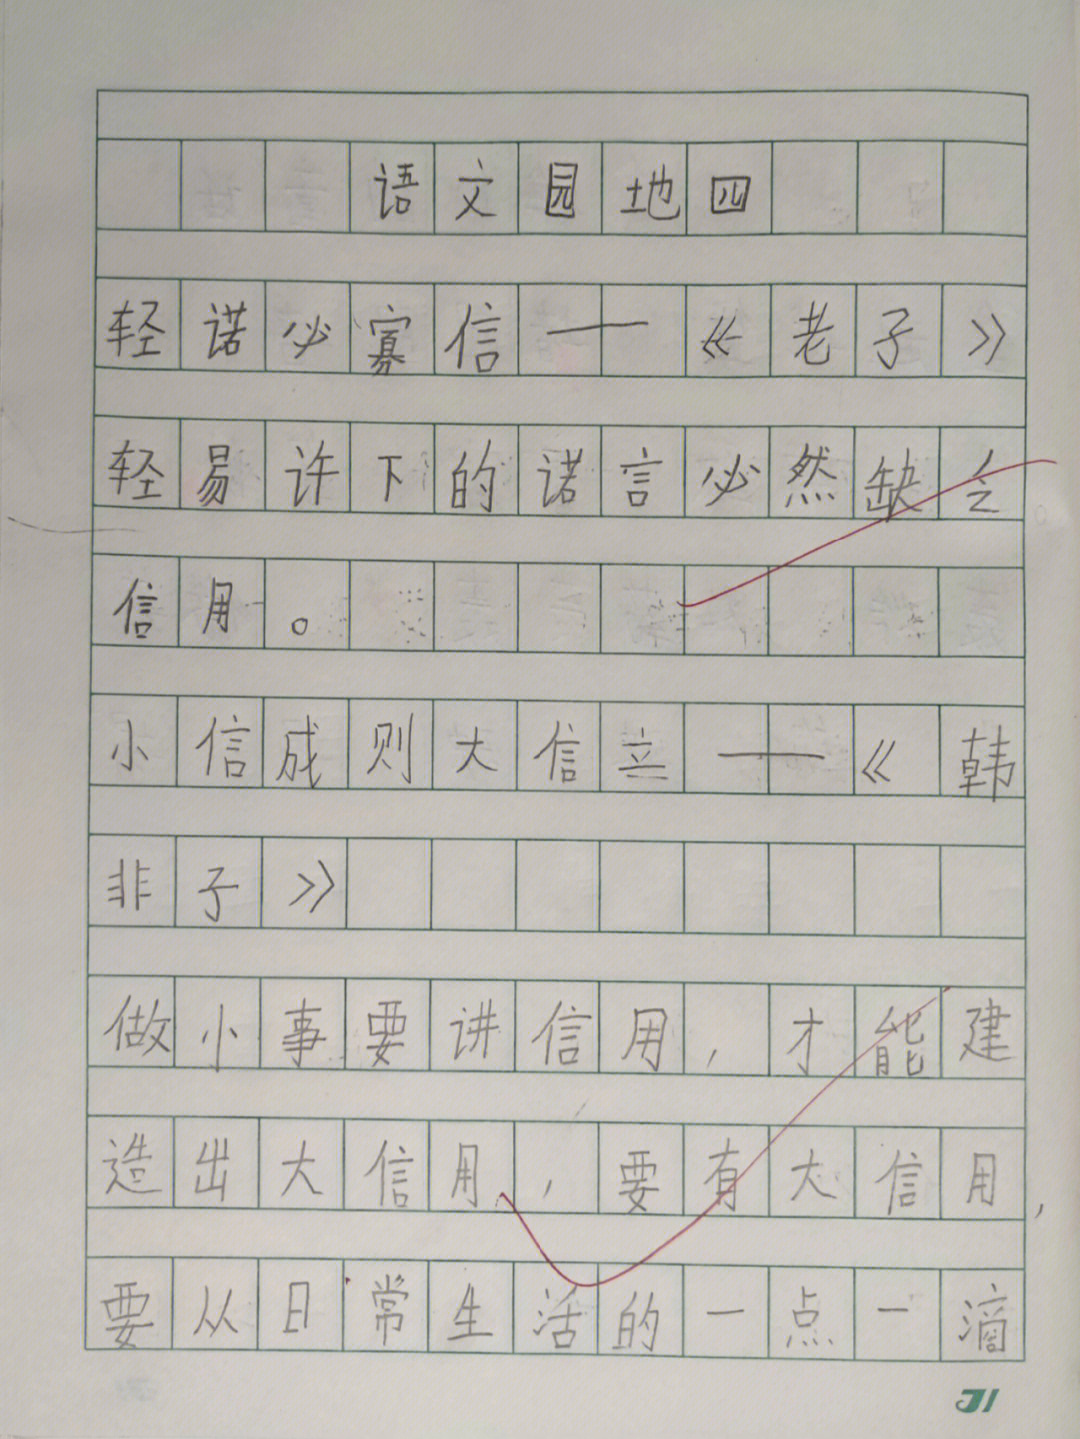 语文园地四
轻诺必寡信——《老子》
轻易许下的诺言必然缺乏
信用。
小信成则大信立——《韩
非子》
做小事要讲信用，才能建
造出大信用，要有大信用，
要从日常生活的一点一滴
31